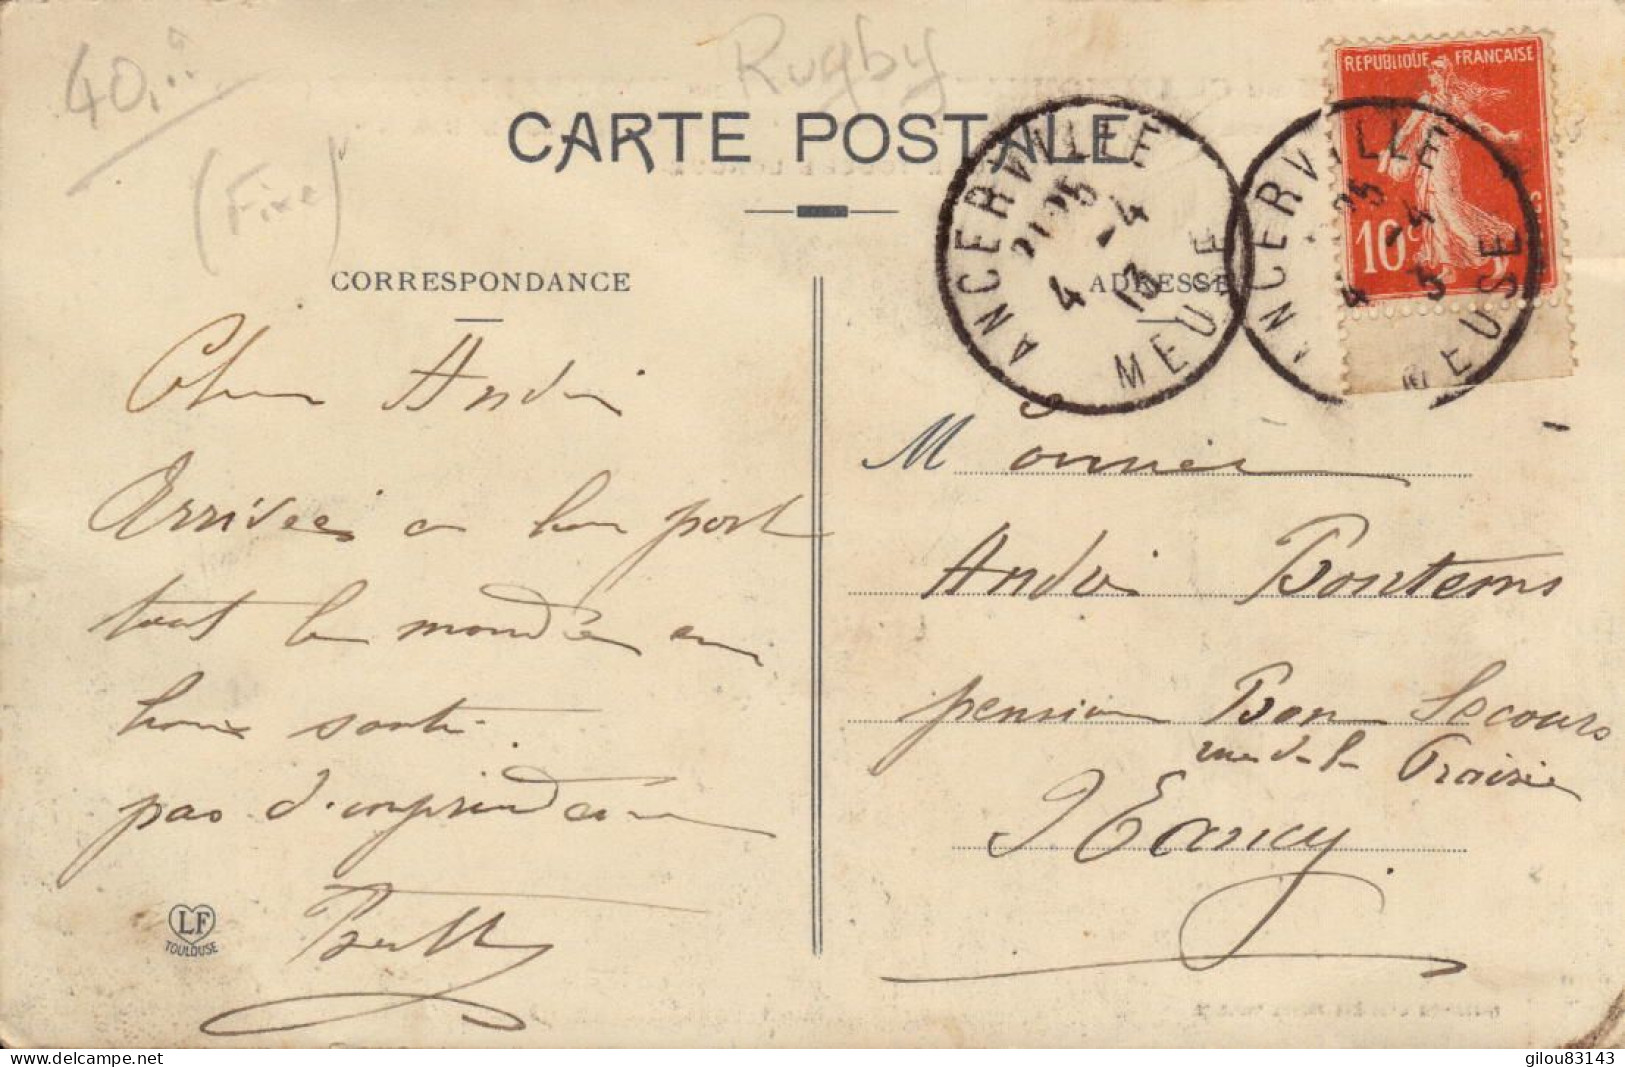 40,..
(Fixe)
Rugby
CARTE POSTALE
REPUBLIQUE FRANÇAISE
10c
ANCERVILLE
21*25
4 -4
13
MEUSE
ANCERVILLE
25
4 -4
3
MEUSE
CORRESPONDANCE
ADRESSE
Cher André
Arrivés a bon port
tout le monde en
bonne santé.
pas d'
LF
TOULOUSE
Monsieur
André Bontems
pension Bon Secours
rue de la Prairie
Nancy.
https://www.delcampe.net
gilou83143